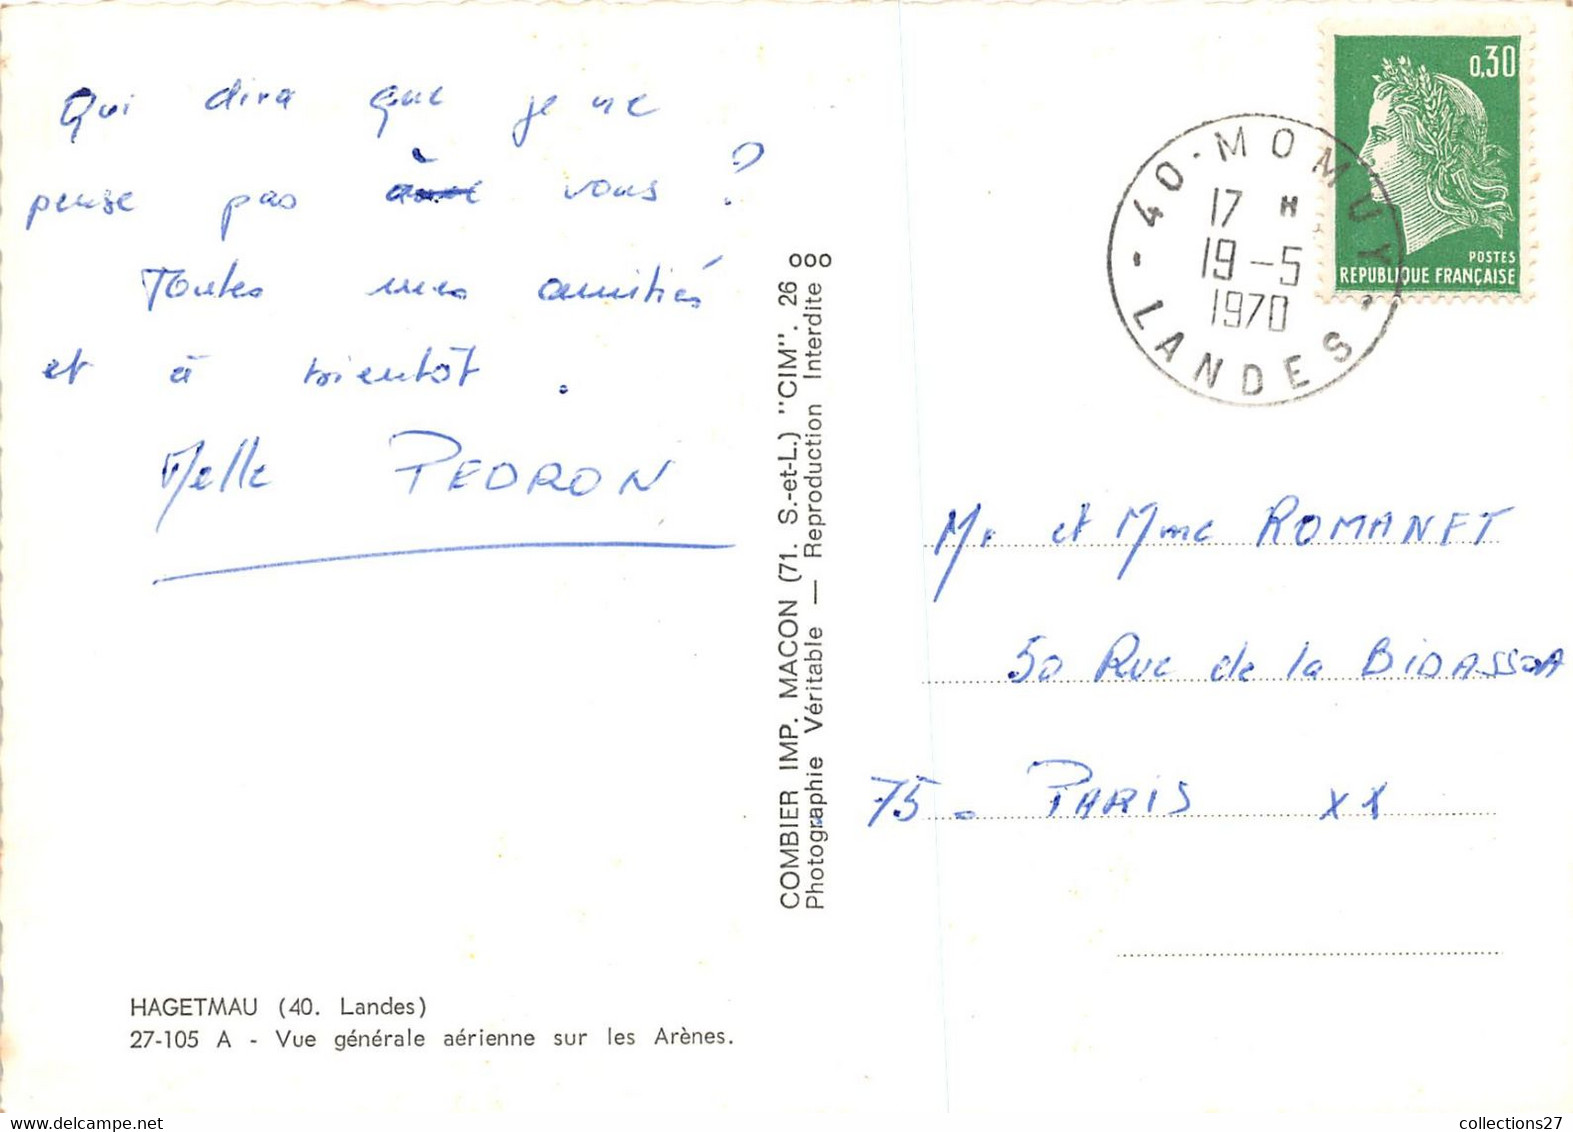 Qui dira que je ne
pense pas à vous ?
Toutes mes amitiés
et à bientôt .
Melle PEDRON
HAGETMAU (40. Landes)
27-105 A - Vue générale aérienne sur les Arènes.
COMBIER IMP. MACON (71. S.-et-L.) "CIM". 26
Photographie Véritable — Reproduction Interdite
0,30
POSTES
REPUBLIQUE FRANÇAISE
40 - MOMUY
17 H
19 - 5
1970
LANDES
Mr et Mme ROMANET
50 Rue de la BIDASSOA
75 - PARIS XX
collections27